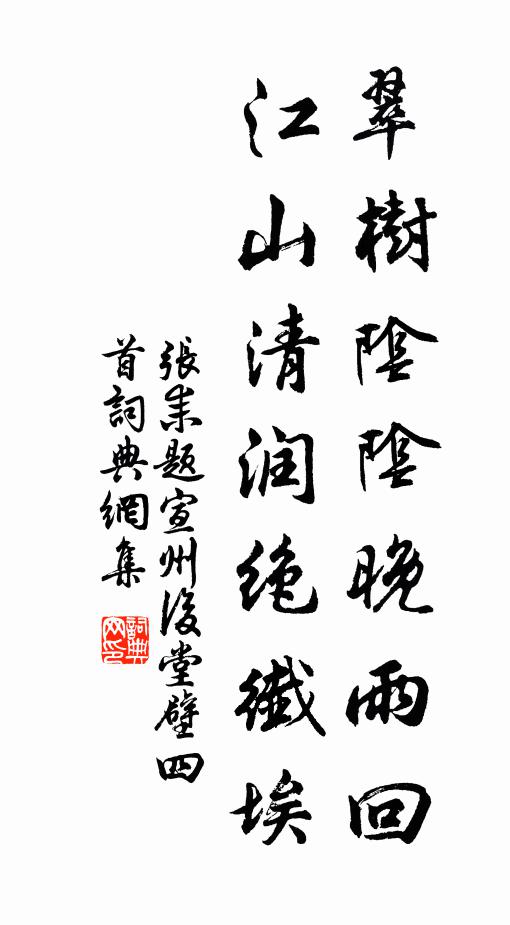 翠樹陰陰晚雨回
江山清润绝纖埃
張耒題宣州後堂壁四
首詞典網集
詞典
网印